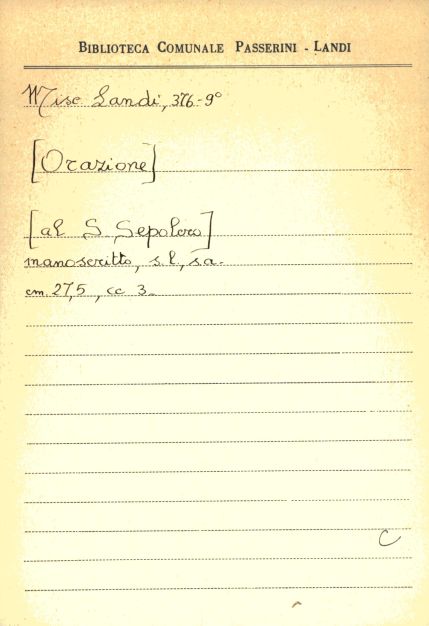 BIBLIOTECA COMUNALE PASSERINI - LANDI
Misc Landi, 376-9°
[Orazione]
[al S. Sepolcro]
manoscritto, s.l., s.a.
cm. 27,5, cc 3.
C